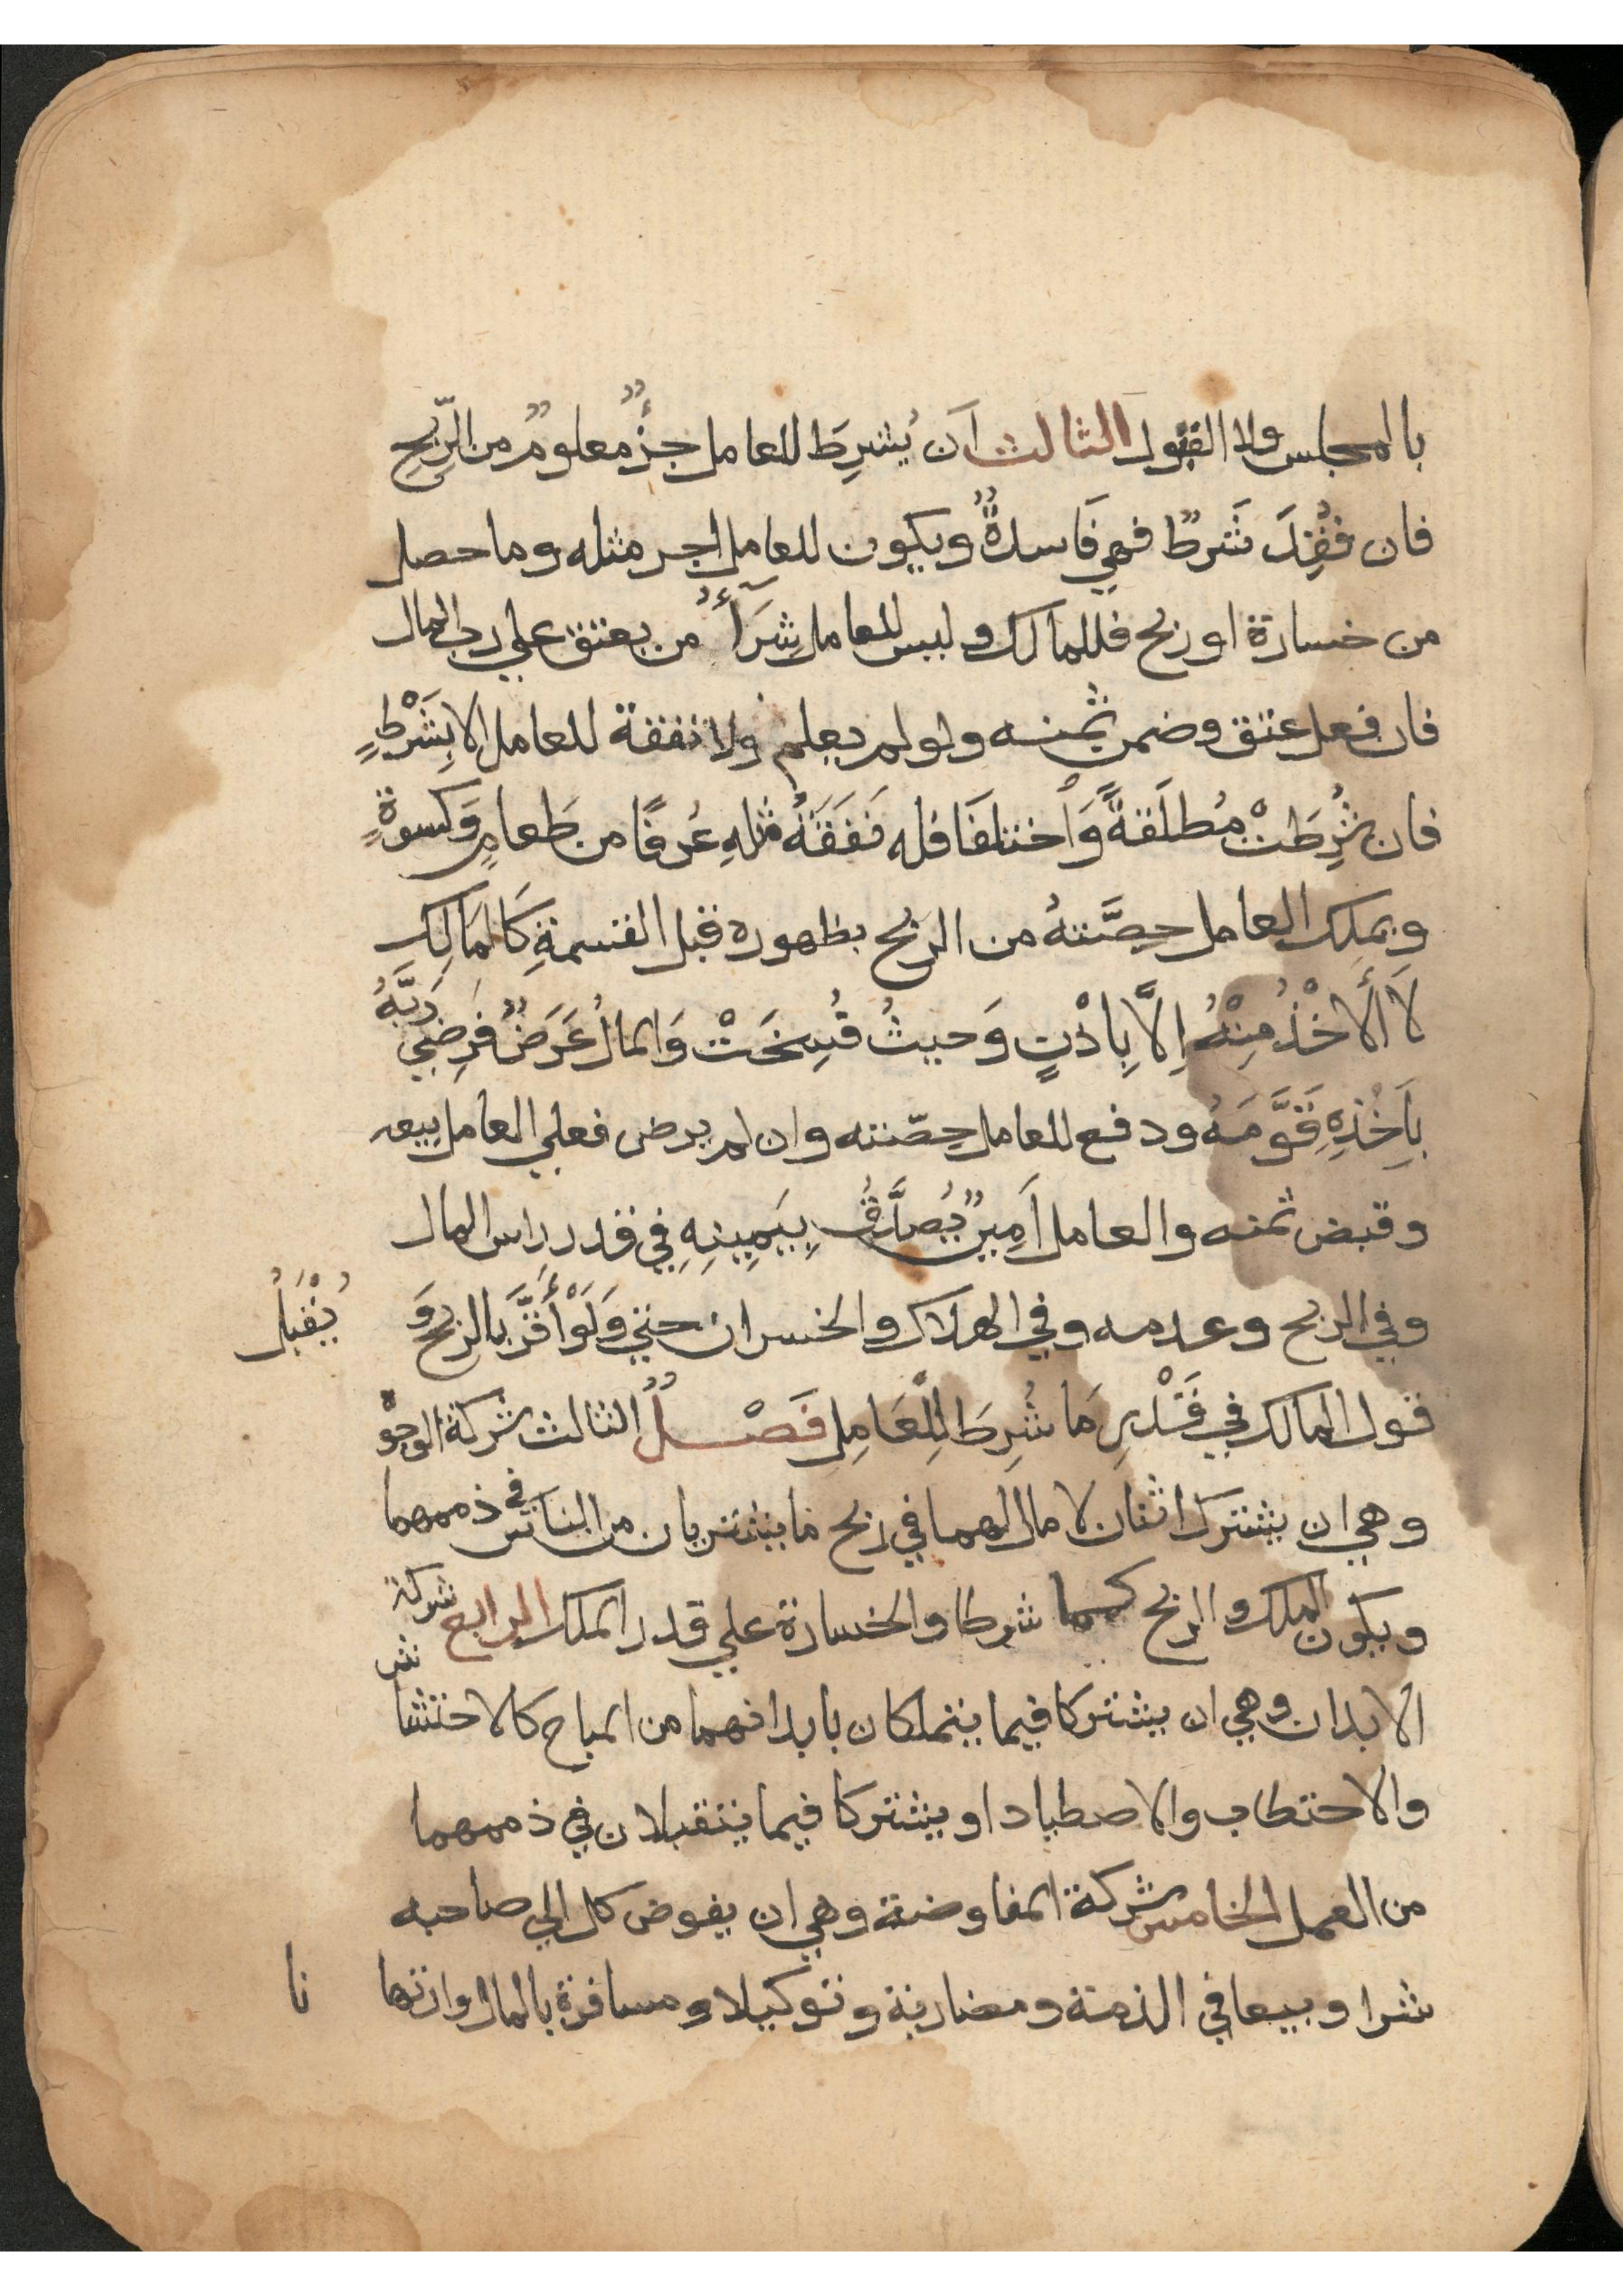 بالمجلس ولا القبول الثالث أن يُشرِطَ للعامل جزءٌ معلومٌ من الرِّبحِ
فان فُقِدَ شَرطٌ فهي فَاسدةٌ ويكون للعامل اجر مثله وما حصل
من خسارة او ربح فللمالك وليس للعامل شِرَآءُ من يعتق علي رب المال
فان فعل عتق وضمن ثمنه ولو لم يعلم ولا نفقة للعامل الا بِشَرْطٍ
فان شُرِطَتْ مُطلَقةً وَاختلفَا فله نَفَقَةُ مثلِهِ عُرفًا من طَعامٍ وَكسوةٍ
ويملك العامل حِصَّتهُ من الربح بظهوره قبل القسمةِ كَالمَالِكِ
لاَ الأَخْذُ مِنْهُ اِلاَّ بِاذْنٍ وَحيثُ فُسِخَتْ وَالمالُ عَرَضٌ فَرضِيَ رَبَّهُ
بِأَخْذِهِ قَوَّمَهُ ودفع للعامل حِصّته وان لم يرض فعلي العامل بيعه
وقبض ثمنه والعامل أَمِينٌ يُصدَّقُ بِيَمِينِهِ في قدر راس المال
وفي الربح وعدمه وفي الهلاك والخسران حتي وَلَوْ أَقَرَّ بالربح وَ يُقْبَلُ
قول المالك في قَدْرِ مَا شُرِطَ لِلْعَامِل فَصْلٌ الثالث شركة الوجو
وهي ان يشترك اثنان لا مال لهما في ربح ما يشتريان من الناس في ذممهما
ويكون الملك والربح كما شرطا والخسارة علي قدر الملك الرابع شركة
شر
الابدان وهي ان يشتركا فيما يتملكان بابدانهما من المباح كالاحتشا
والاحتطاب والاصطياد او يشتركا فيما يتقبلان في ذممهما
من العمل الخامس شركة المفاوضة وهي ان يفوض كل الي صاحبه
شرا وبيعا في الذمة ومضاربة وتوكيلا ومسافرة بالمال وارتها نا